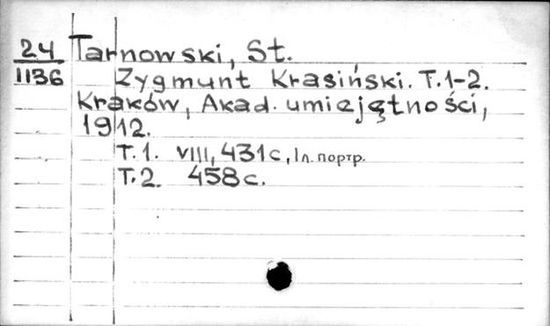 24 Tarnowski, St.
1136 Zygmunt Krasiński. T.1-2.
Kraków, Akad. umiejętności,
1912.
T.1. VIII, 431 с., 1 л. портр.
T.2. 458 с.